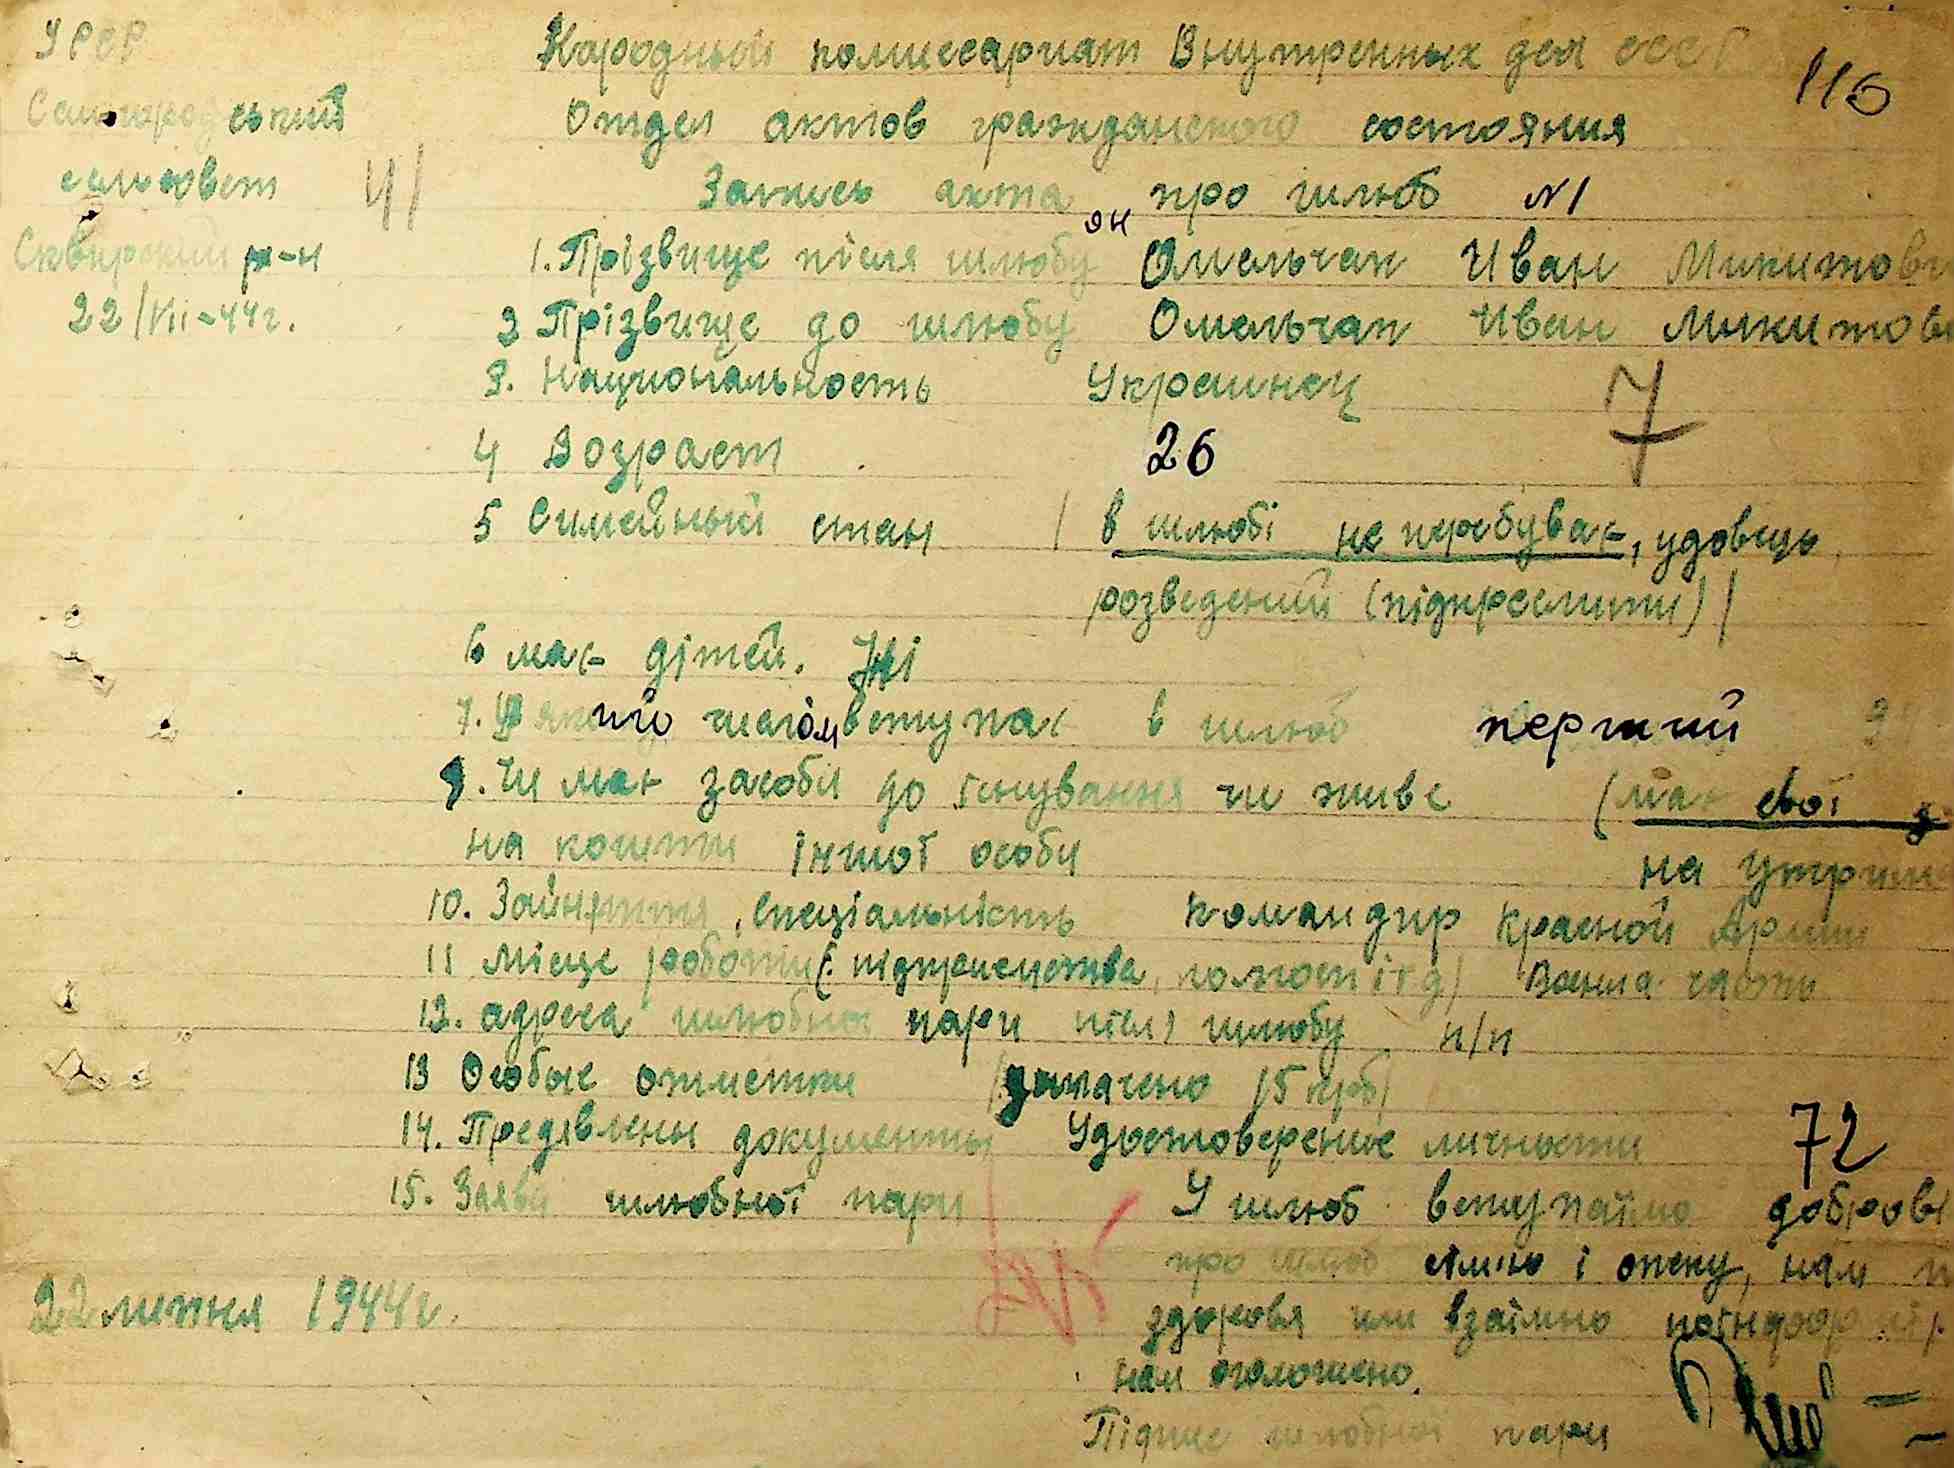 УРСР
Самгородський
сельсовет
Сквирский р-н
22/VII-44г.
41
Народный комиссариат Внутренных дел СССР
116
Отдел актов гражданского состояния
Запись акта про шлюб N1
1. Прізвище після шлюбу Омельчан Иван Микитови
ян
2 Прізвище до шлюбу Омельчан Иван Микитов
3. Национальность Украинец
7
4 Возраст 26
5 Симейный стан / в шлюбі не перебуває, удовець,
розведений (підкреслити)/
6 має дітей. Ні
7. шлюб перший
9. Чи має засоби до існування чи живе (має свої з
на кошти іншої особи на утрим
10. Зайняття, спеціальність командир Красной Армии
11 Місце роботи (підприємства, колгосп і т д) Воена часть
12. адреса шлюбної пари після шлюбу п/п
13 Особые отметки /заплачено 15 крб/
14. Предявлены документы Удостоверение личности
72
15. Заява шлюбної пари У шлюб вступаймо добров
про шлюб сімью і опеку, нам
здоровя или взаімно
нам оголошено.
22 липня 1944г.
Підпис шлюбної пари